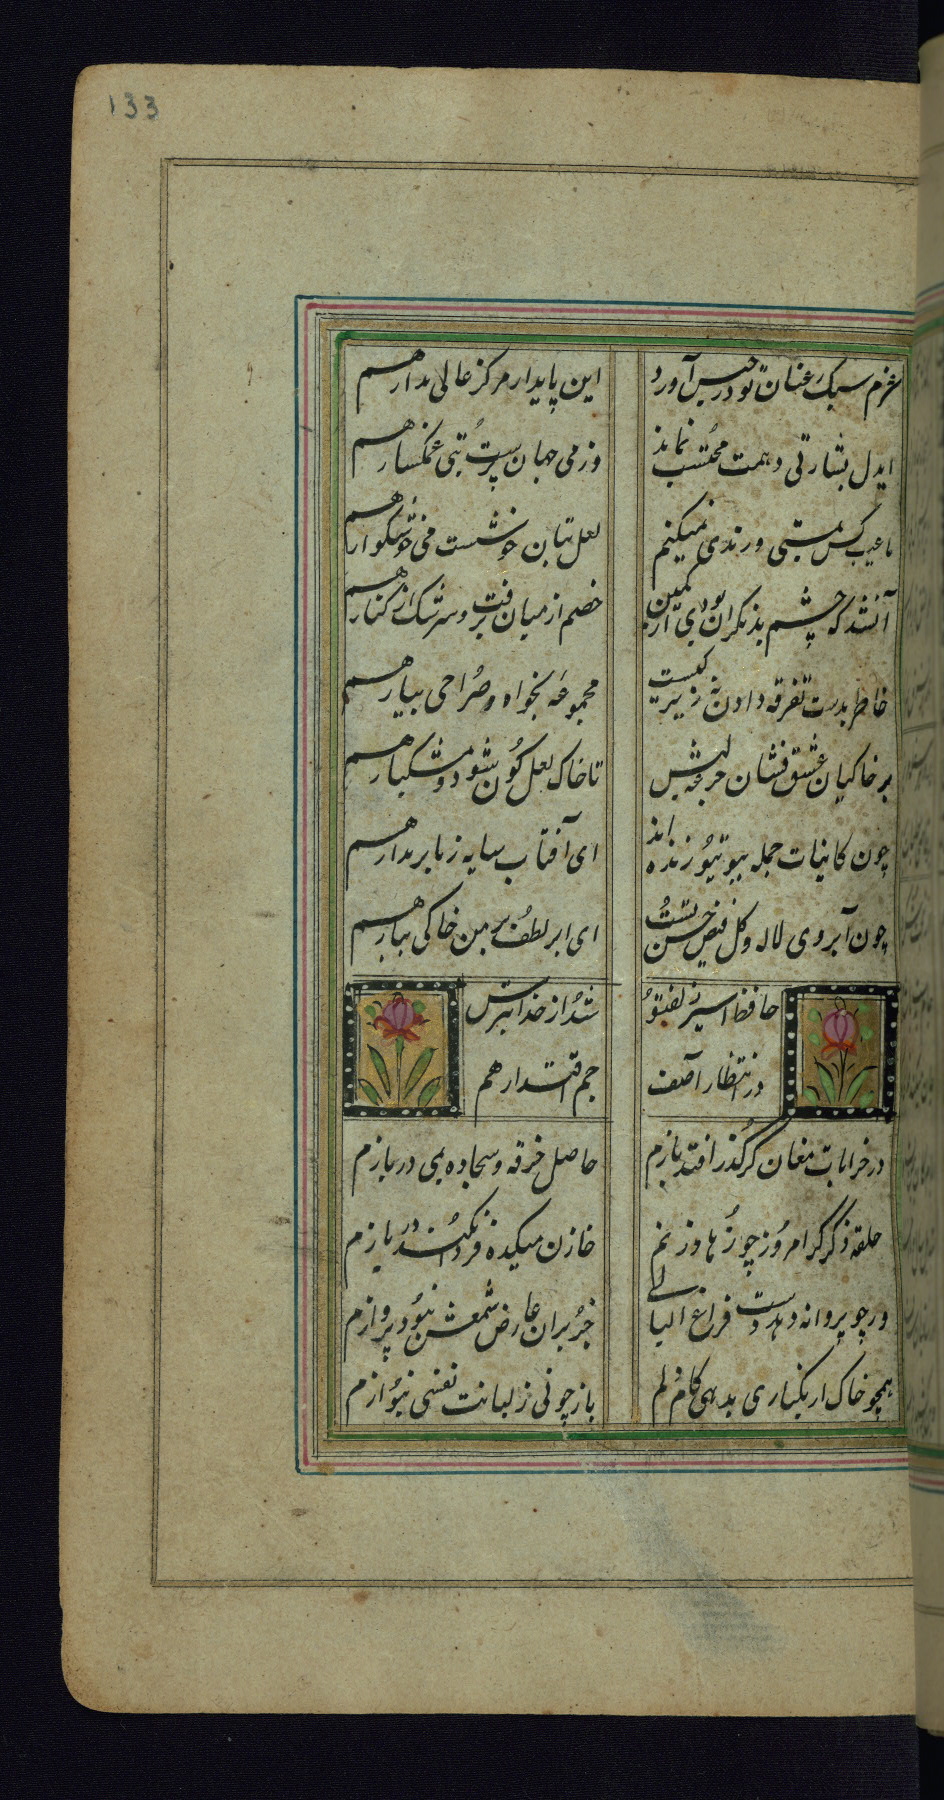 133
عزم سبک عنان تو در جنبش آورد این پایدار مرکز عالی مدار هم
ایدل بشارتی دهمت محتسب نماند وز می جهان پرست و بت میگسار هم
ما عیب کس بمستی و رندی نمیکنیم لعل بتان خوشست و می خوشگوار هم
آنشد که چشم بد نکران بودی از کمین خصم از میان برفت و سرشک از کنار هم
خاطر بدست تفرقه دادن نه زیرکیست مجموعه بخواه و صراحی بیار هم
بر خاکیان عشق فشان جرعه لبش تا خاک لعل کون شود و مشکبار هم
چون کاینات جمله ببوی تو زنده اند ای آفتاب سایه ز ما بر مدار هم
چون آبروی لاله و کل فیض حسن تست ای ابر لطف بر من خاکی ببار هم
حافظ اسیر زلف تو شد از خدا بترس
در انتظار آصف جم اقتدار هم
در خرابات مغان گر گذر افتد بازم حاصل خرقه و سجاده می در بازم
حلقه ذکر گر امروز چو زهاد زنم خازن میکده فردا نکند در بازم
ور چو پروانه دهد دست فراغ البالی جز بران عارض شمعش نبود پروازم
همچو خاک ار بکناری بدهی کام دلم باز چو نی ز لبانت نفسی بنوازم